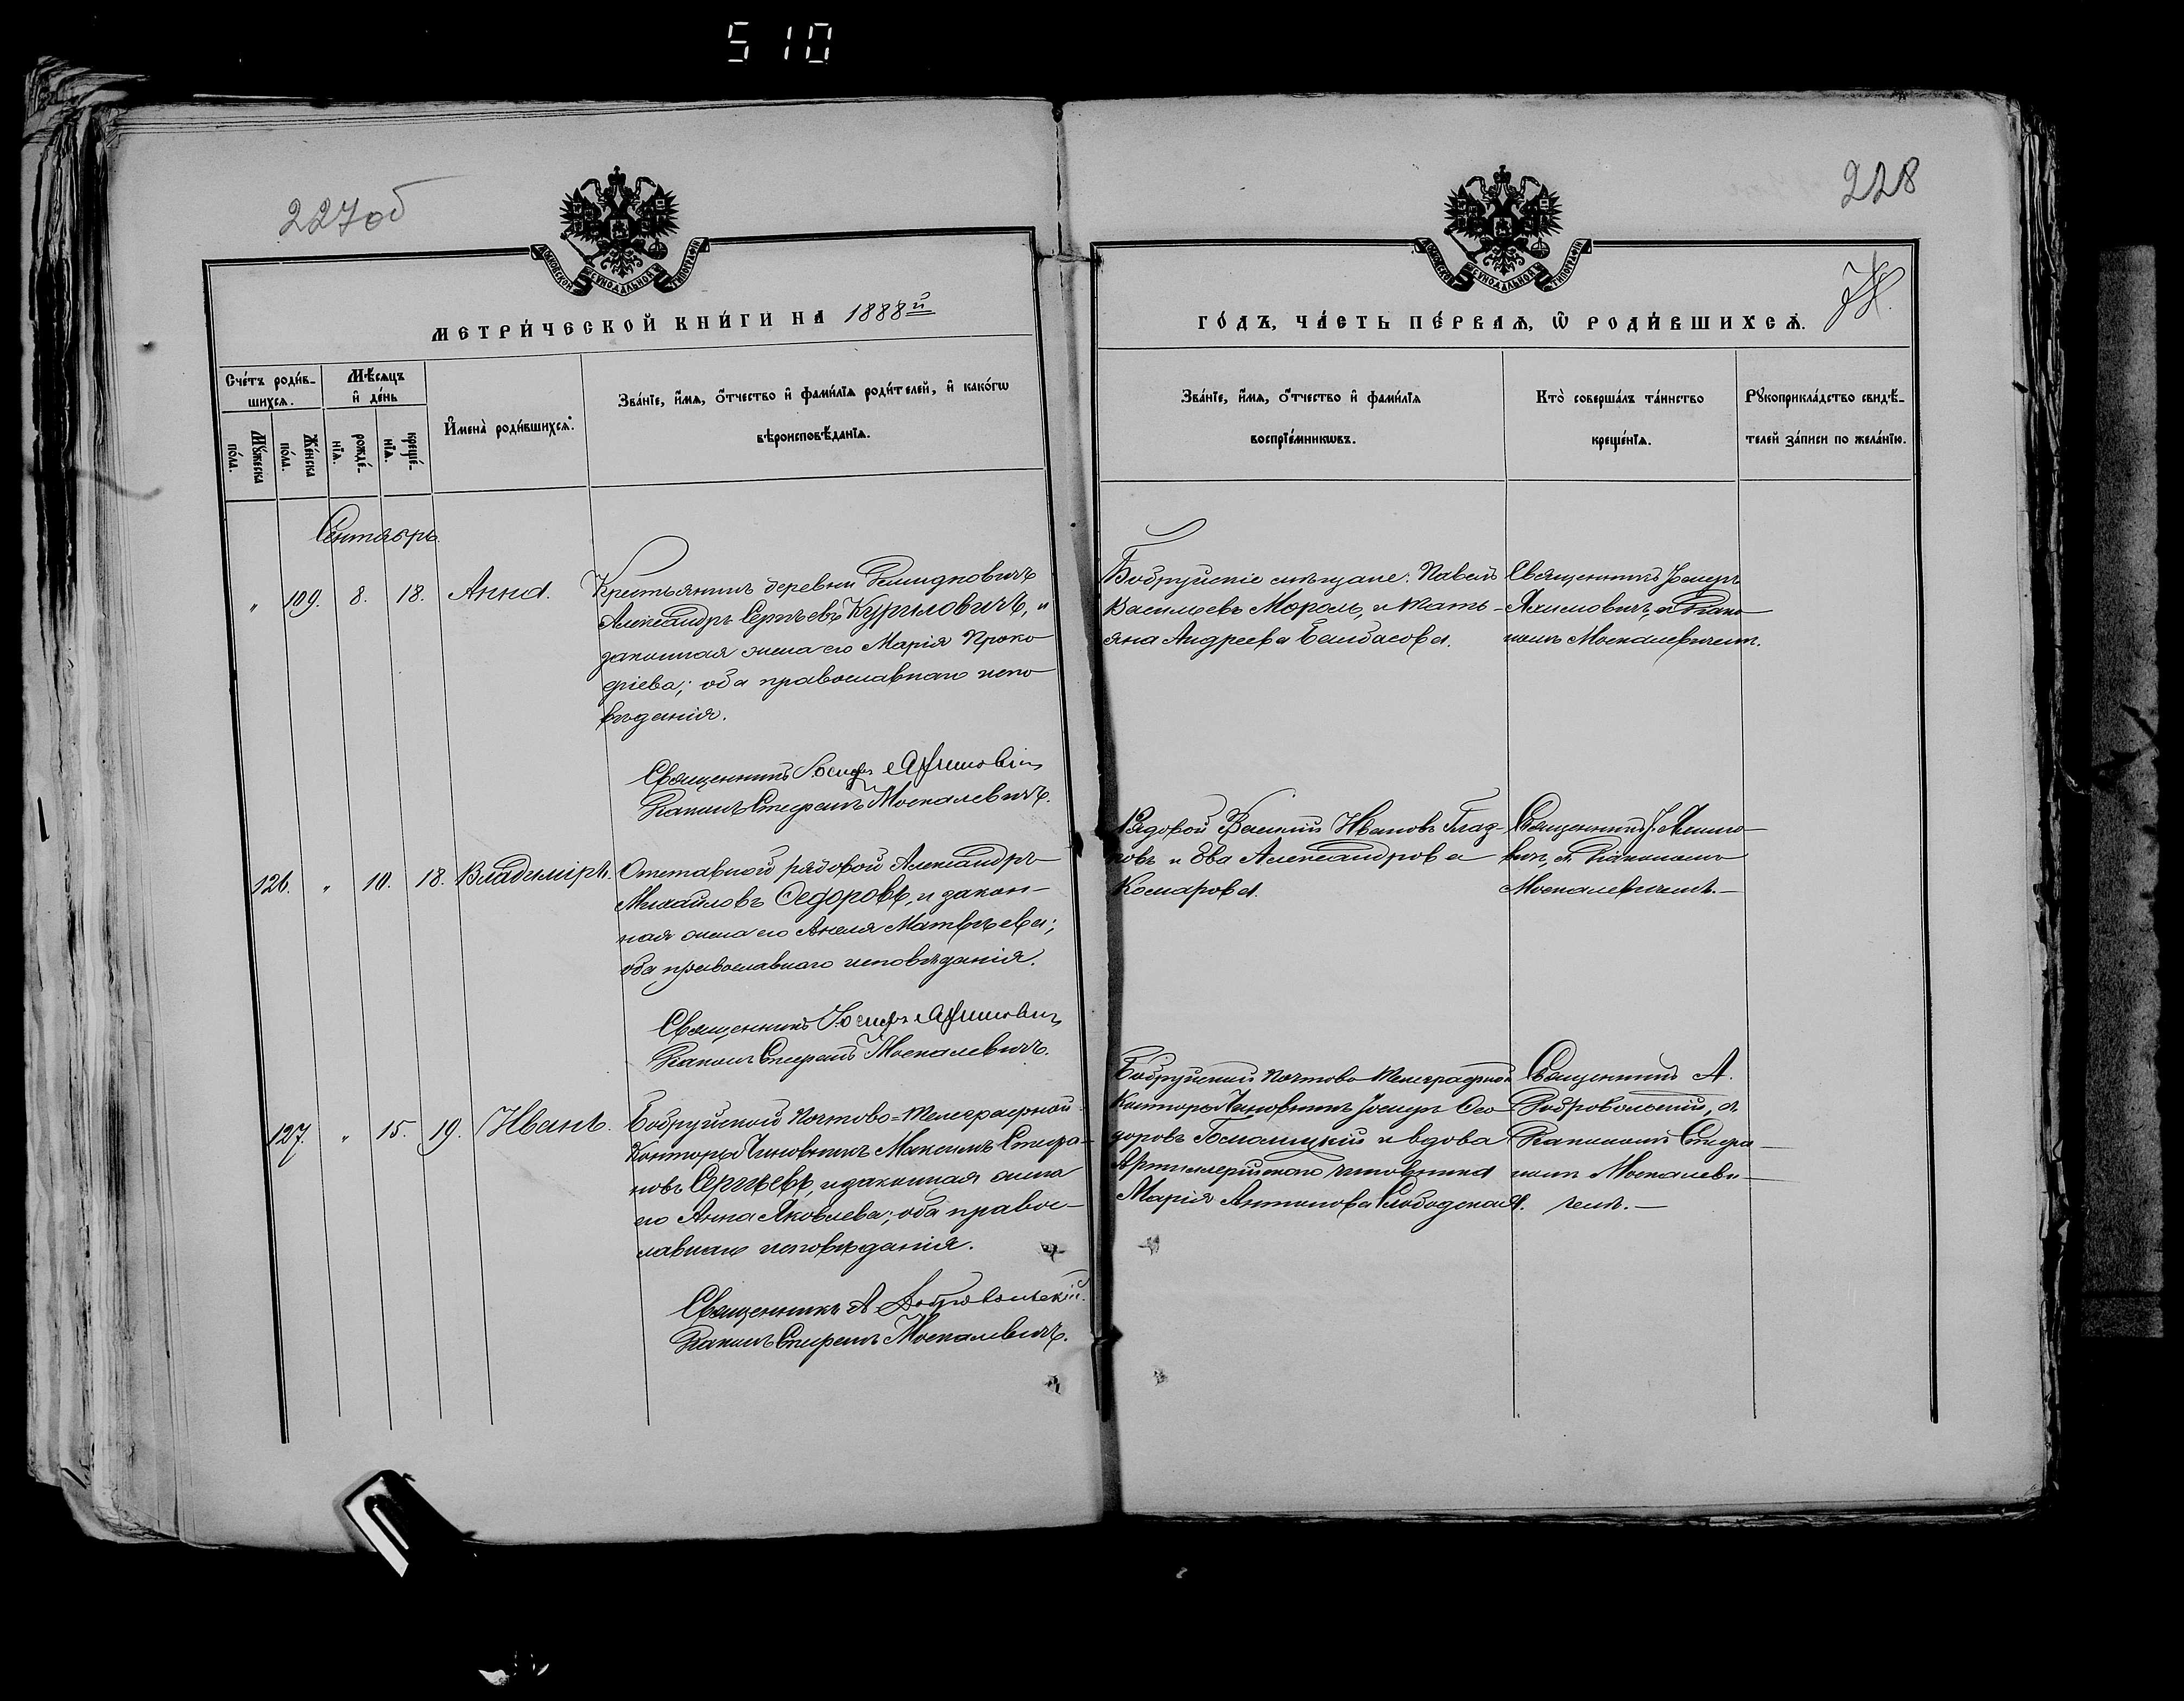 510
227об
228
МОСКОВСКОЙ СУНОДАЛЬНОЙ ТИПОГРАФІИ
МОСКОВСКОЙ СУНОДАЛЬНОЙ ТИПОГРАФІИ
МЕТРИ́ЧЕСКОЙ КНИ́ГИ НА 1888й
ГО́ДЪ, ЧА́СТЬ ПЕ́РВАѦ, Ѡ҆ РОДИ́ВШИХСѦ.
Сче́тъ роди́в-
шихсѧ.
Мѣ́сѧцъ
и҆ де́нь
Мꙋ́жеска
по́ла.
Же́нска
по́ла.
рожде́-
нїѧ.
креще́-
нїѧ.
И҆мена̀ роди́вшихсѧ.
Зва́нїе, и҆́мѧ, ѻ҆́тчество и҆ фами́лїѧ роди́телей, и҆ како́гѡ
вѣроисповѣ́данїѧ.
Зва́нїе, и҆́мѧ, ѻ҆́тчество и҆ фами́лїѧ
воспрїе́мникѡвъ.
Кто̀ соверша́лъ та́инство
креще́нїѧ.
Рꙋкоприкла́дство свидѣ́-
телей за́писи по жела́нїю.
Сентябрь.
" 109. 8. 18. Анна.
Крестьянинъ деревни
Александръ Сергѣевъ Куриловичъ, и
законная жена его Марія Проко
фіева; оба православнаго испо
вѣданія.
Священникъ Іосифъ Яхимовичъ
Діаконъ Стефанъ Москалевичъ.
Бобруйскіе мѣщане: Павелъ
Васильевъ Мороль, и Мать-
яна Андреева Балбасова.
Священникъ Іосифъ
Яхимовичъ, съ Діако-
номъ Москалевичемъ.
126. " 10. 18. Владиміръ.
Отставной рядовой Александръ
Михайловъ Ѳедоровъ, и закон-
ная жена его Анеля Матвѣева;
оба православнаго исповѣданія.
Священникъ Іосифъ Яхимовичъ
Діаконъ Стефанъ Москалевичъ.
Рядовой Василій Ивановъ Глад-
ковъ и Ева Александрова
Комарова.
Священникъ І. Яхимо-
вичъ, съ Діакономъ
Москалевичемъ.—
127. " 15. 19. Иванъ.
Бобруйской Почтово-Телеграфной
Конторы Чиновникъ Максимъ Стефа-
новъ Сергѣевъ, и законная жена
его Анна Яковлева; оба правос-
лавнаго исповѣданія.
Священникъ А Добровольскій.
Діаконъ Стефанъ Москалевичъ.
Бобруйской Почтово Телеграфной
Конторы Чиновникъ Іосифъ Ѳео
доровъ и вдова
Артиллерійскаго чиновника
Марія Антонова Слободская.
Священникъ А.
Добровольскій, съ
Діакономъ Стефа-
номъ Москалеви-
чемъ.—